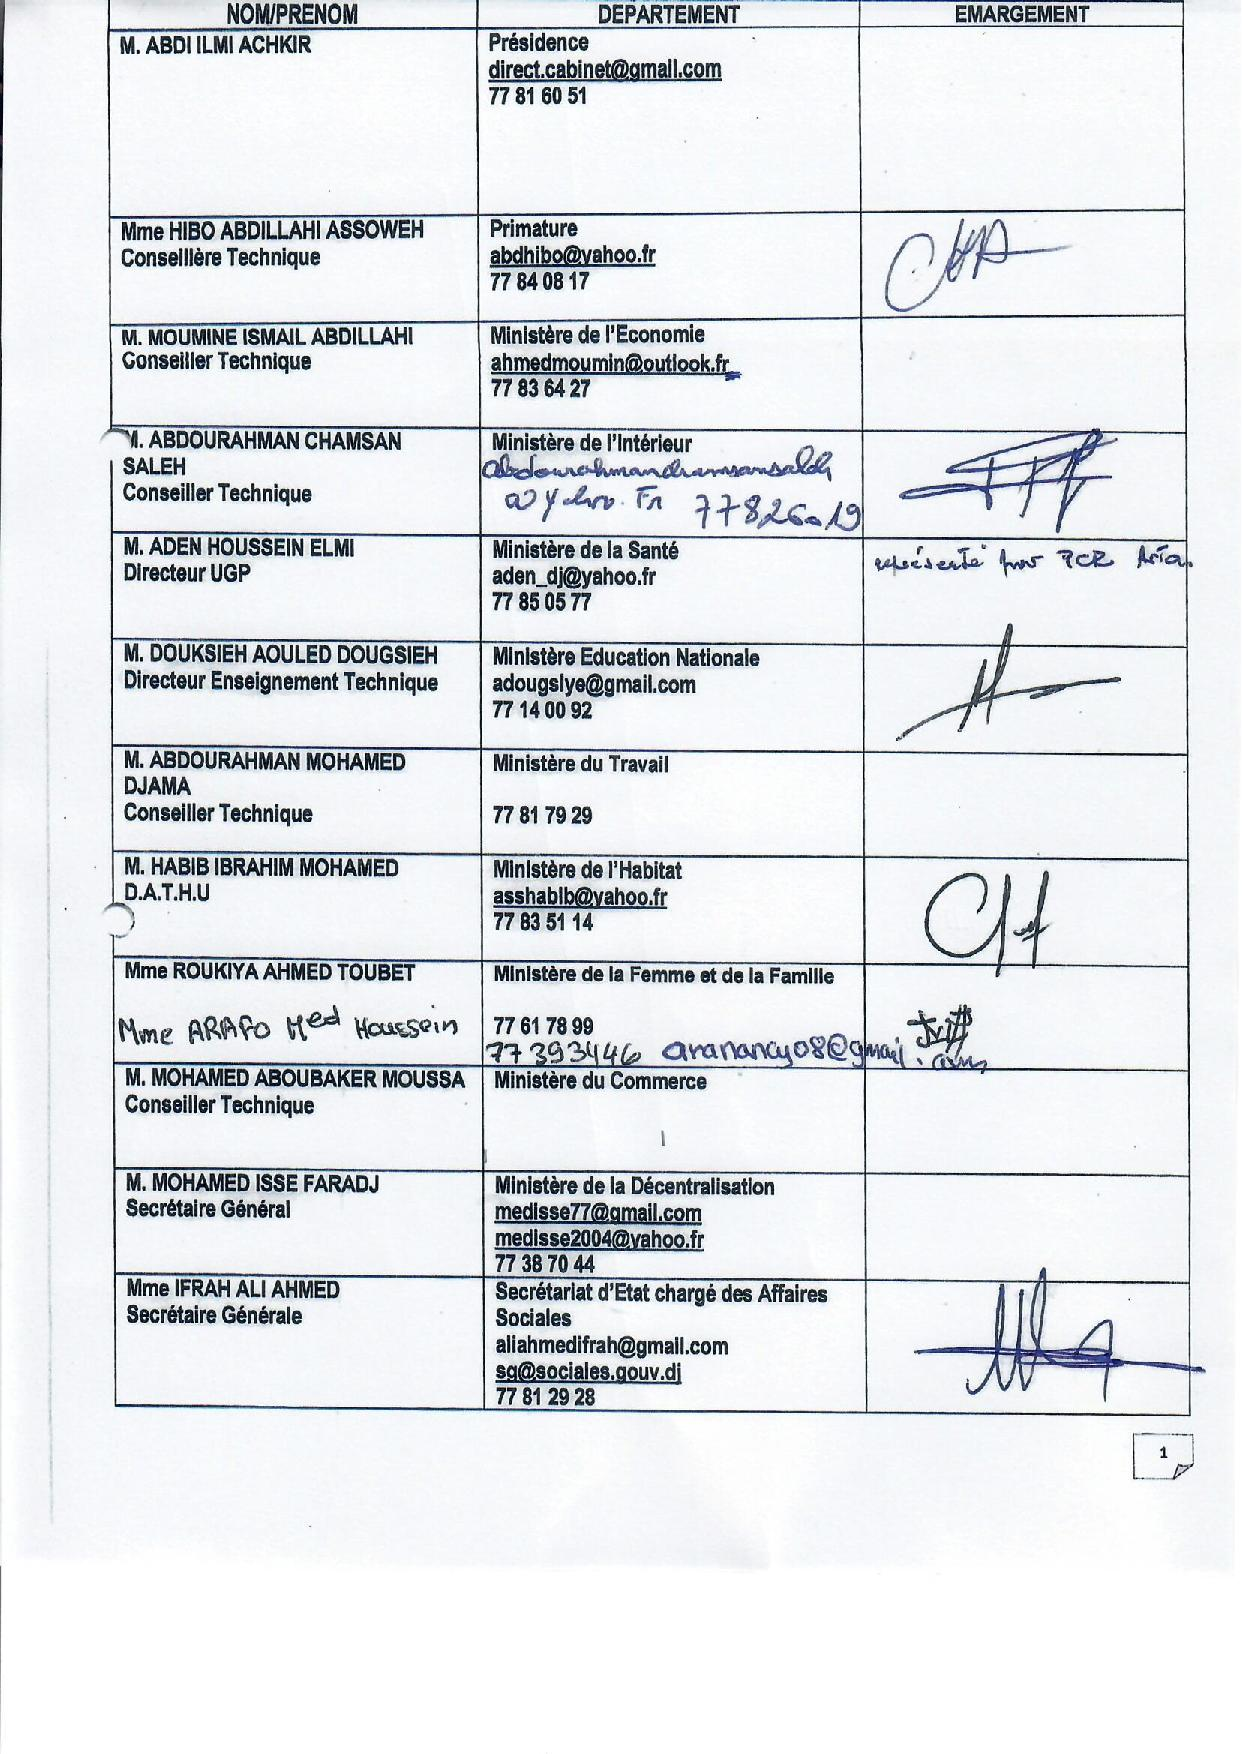 NOM/PRENOM DEPARTEMENT EMARGEMENT
M. ABDI ILMI ACHKIR
Présidence
direct.cabinet@gmail.com
77 81 60 51
Mme HIBO ABDILLAHI ASSOWEH
Conseillère Technique
Primature
abdhibo@yahoo.fr
77 84 08 17
M. MOUMINE ISMAIL ABDILLAHI
Conseiller Technique
Ministère de l'Economie
ahmedmoumin@outlook.fr
77 83 64 27
M. ABDOURAHMAN CHAMSAN
SALEH
Conseiller Technique
Ministère de l'Intérieur
M. ADEN HOUSSEIN ELMI
Directeur UGP
Ministère de la Santé
aden_dj@yahoo.fr
77 85 05 77
représenté par PCR Arta.
M. DOUKSIEH AOULED DOUGSIEH
Directeur Enseignement Technique
Ministère Education Nationale
adougslye@gmail.com
77 14 00 92
M. ABDOURAHMAN MOHAMED
DJAMA
Conseiller Technique
Ministère du Travail
77 81 79 29
M. HABIB IBRAHIM MOHAMED
D.A.T.H.U
Ministère de l'Habitat
asshabib@yahoo.fr
77 83 51 14
Mme ROUKIYA AHMED TOUBET
Mme ARAFO Med Houssein
Ministère de la Femme et de la Famille
77 61 78 99
77393446 aranancy08@gmail.com
M. MOHAMED ABOUBAKER MOUSSA
Conseiller Technique
Ministère du Commerce
M. MOHAMED ISSE FARADJ
Secrétaire Général
Ministère de la Décentralisation
medisse77@gmail.com
medisse2004@yahoo.fr
77 38 70 44
Mme IFRAH ALI AHMED
Secrétaire Générale
Secrétariat d'Etat chargé des Affaires
Sociales
aliahmedifrah@gmail.com
sg@sociales.gouv.dj
77 81 29 28
1